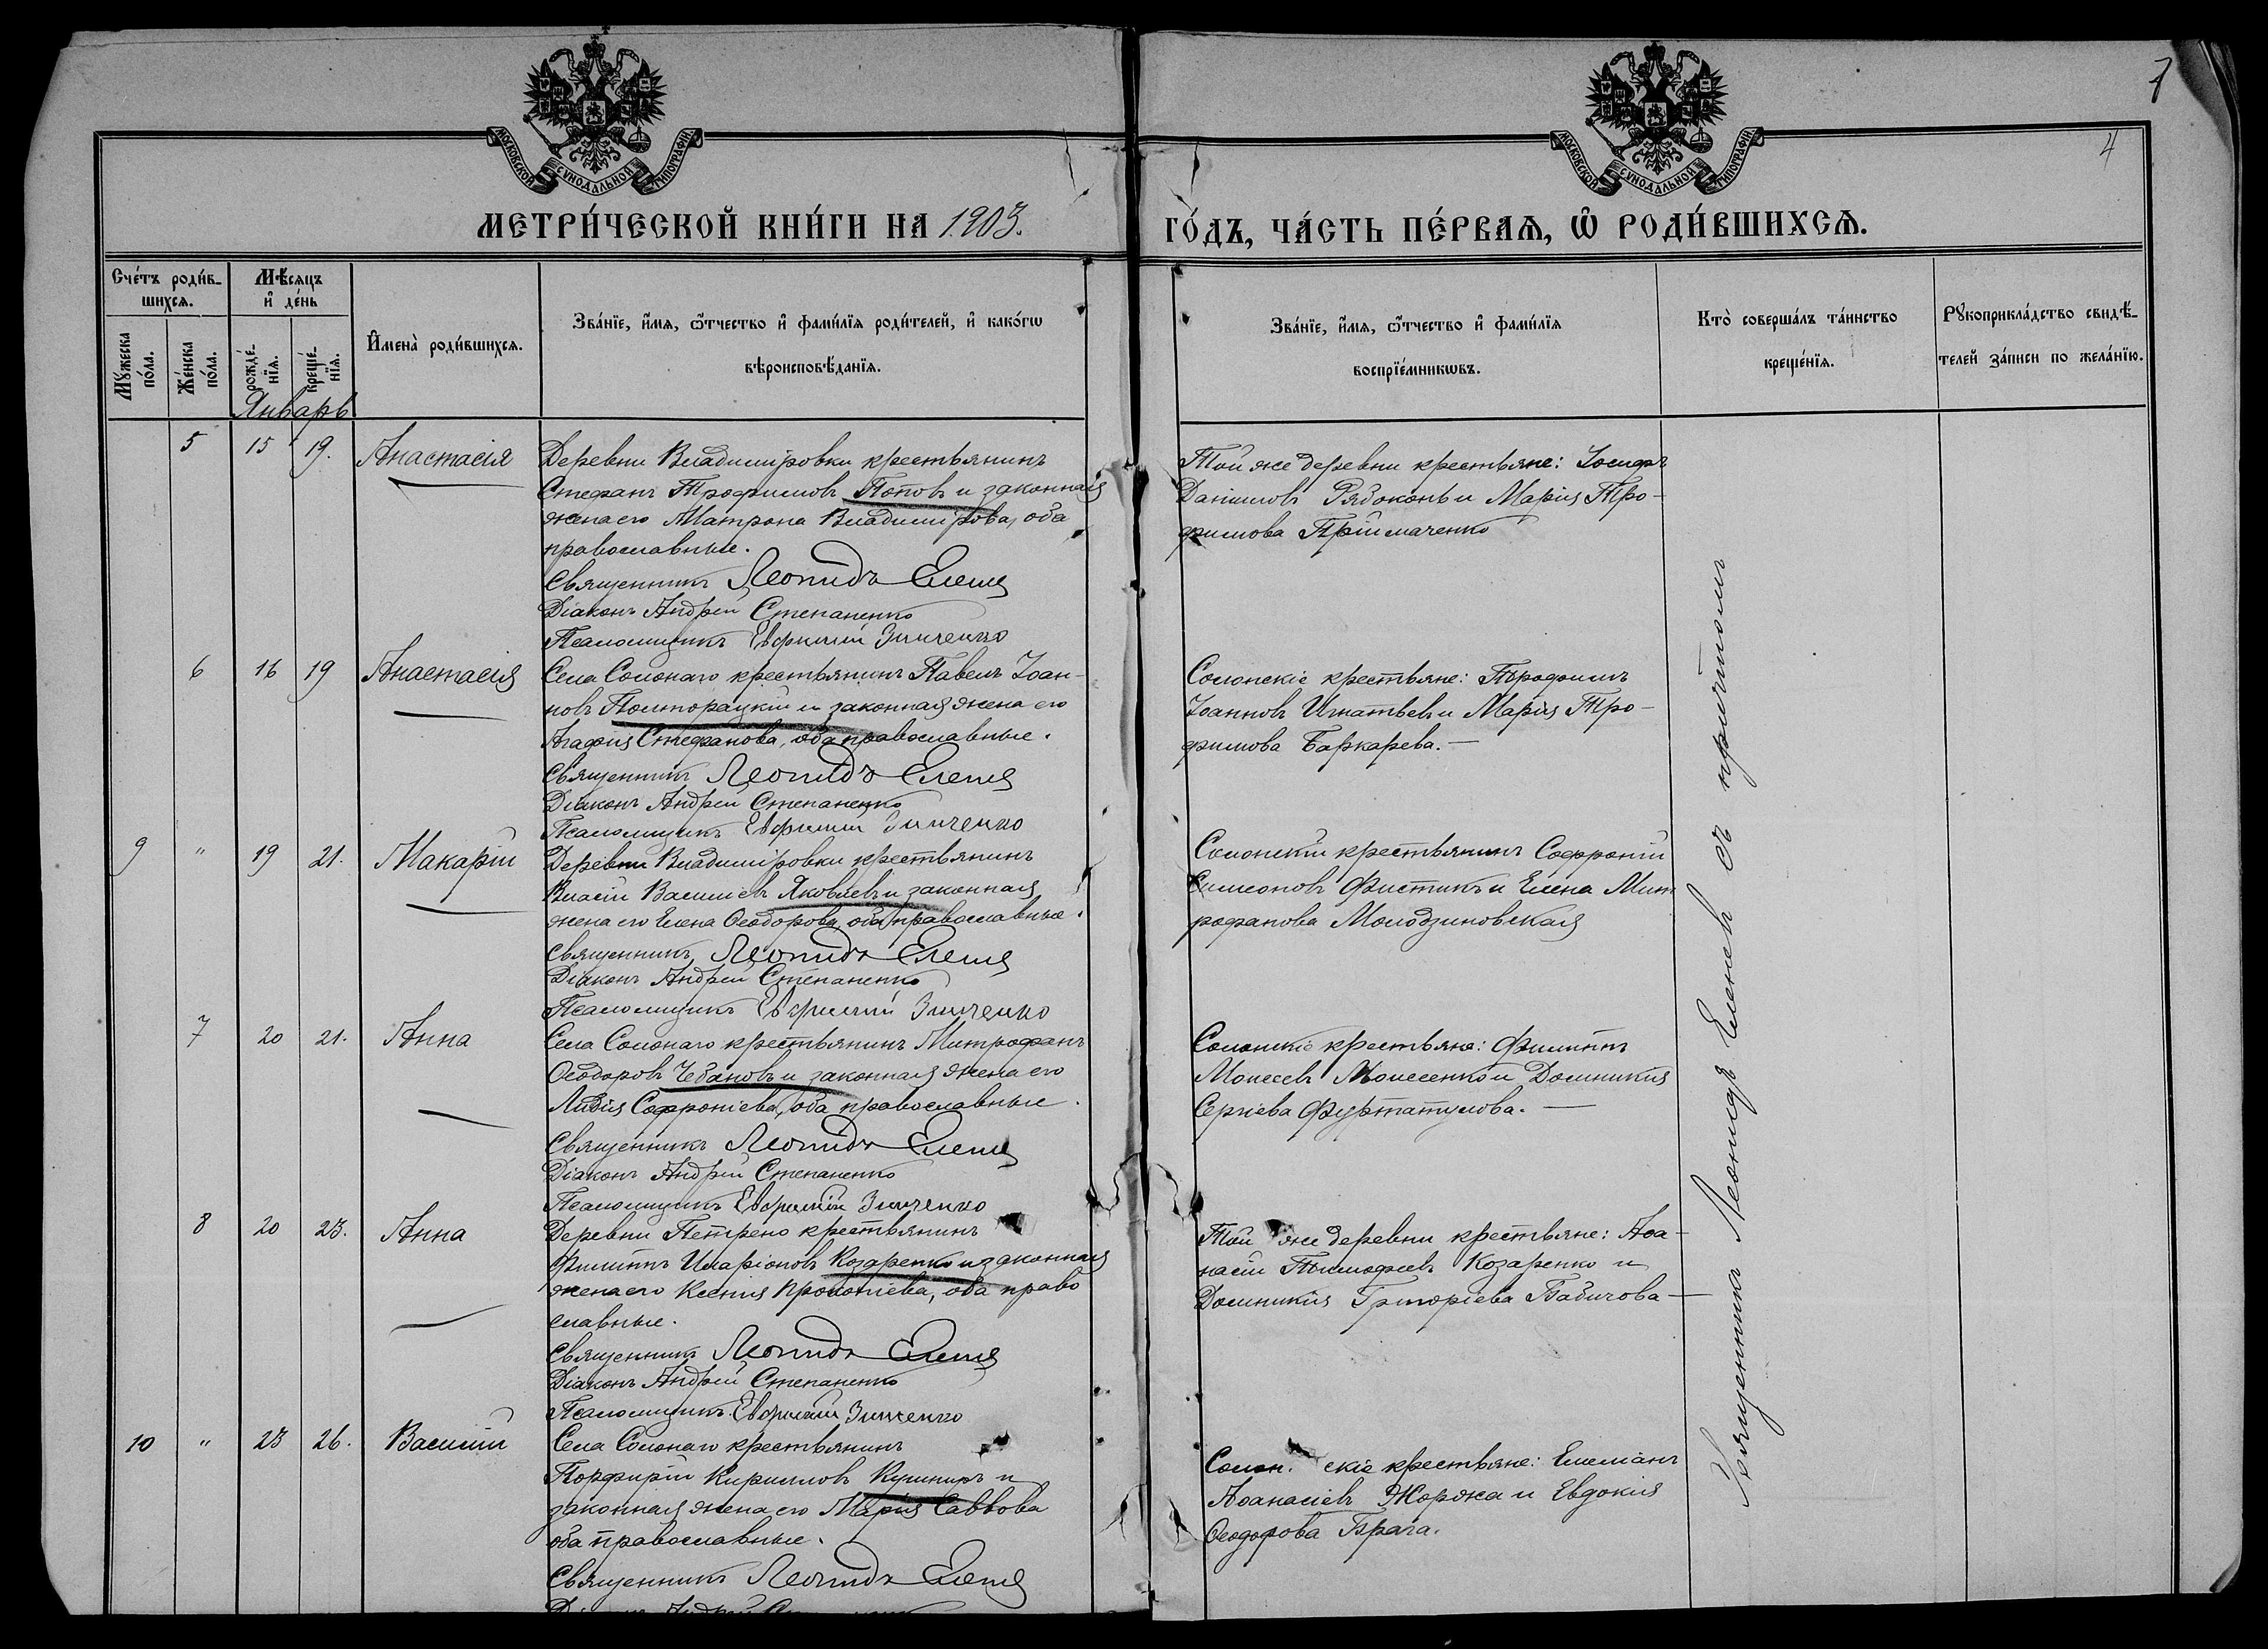 7
4
МОСКОВСКОЙ СѴНОДАЛЬНОЙ ТИПОГРАФІИ
МОСКОВСКОЙ СѴНОДАЛЬНОЙ ТИПОГРАФІИ
МЕТРИ́ЧЕСКОЙ КНИ́ГИ НА 1903.
ГО́ДЪ, ЧА́СТЬ ПЕ́РВАѦ, Ѽ РОДИ́ВШИХСѦ.
Сче́тъ роди́в-
шихсѧ.
Мꙋ́жеска по́ла.
Же́нска по́ла.
Мѣ́сяцъ
и҆ де́нь
рожде́-нїѧ.
креще́-нїѧ.
И҆мена̀ роди́вшихсѧ.
Зва́нїе, и҆́мѧ, ѻ҆́тчество и҆ фами́лїѧ роди́телей, и҆ како́гѡ
вѣроисповѣ́данїѧ.
Зва́нїе, и҆́мѧ, ѻ҆́тчество и҆ фами́лїѧ
воспрїе́мникѡвъ.
Кто̀ соверша́лъ та́инство
креще́нїѧ.
Рꙋкоприкла́дство свидѣ́-
телей за́писи по жела́нїю.
Январь
5 15 19. Анастасія
Деревни Владиміровки крестьянинъ
Стефанъ Трофимовъ Поповъ и законная
жена его Матрона Владимірова, оба
православные.
Священникъ Леонидъ Еленевъ
Діаконъ Андрей Степаненко
Псаломщикъ Евфимій Зинченко
Той же деревни крестьяне: Іосифъ
Даніиловъ Рябоконь и Марія Тро-
фимова Пріймаченко
6 16 19 Анастасія
Села Солонаго крестьянинъ Павелъ Іоан-
новъ Полторацкій и законная жена его
Агафія Стефанова, оба православные.
Священникъ Леонидъ Еленевъ
Діаконъ Андрей Степаненко
Псаломщикъ Евфимій Зинченко
Солонскіе крестьяне: Трофимъ
Іоанновъ Игнатьевъ и Марія Тро-
фимова Баркарева. —
9 " 19 21. Макарій
Деревни Владиміровки крестьянинъ
Власій Василіевъ Яковлевъ и законная
жена его Елена Ѳеодорова, оба православные.
Священникъ Леонидъ Еленевъ
Діаконъ Андрей Степаненко
Псаломщикъ Евфимій Зинченко
Солонскіи крестьянинъ Софроній
Симеоновъ Фистикъ и Елена Мит
рофанова Молодзиновская
7 20 21. Анна
Села Солонаго крестьянинъ Митрофанъ
Ѳеодоровъ Чебановъ и законная жена его
Лидія Софроніева, оба православные.
Священникъ Леонидъ Еленевъ
Діаконъ Андрей Степаненко
Псаломщикъ Евфимій Зинченко
Солонскіе крестьяне: Филиппъ
Моисеевъ Моисеенко и Домникія
Сергіева Фуртатулова. —
8 20 23. Анна
Деревни Петрено крестьянинъ
Филиппъ Иларіоновъ Козаренко и законная
жена его Ксенія Прокопіева, оба право
славные.
Священникъ Леонидъ Еленевъ
Діаконъ Андрей Степаненко
Псаломщикъ Евфимій Зинченко
Той же деревни крестьяне: Аѳа-
насій Тимофеевъ Козаренко и
Домникія Григоріева Бабичова —
10 " 23 26. Василій
Села Солонаго крестьянинъ
Порфирій Кирилловъ Кушниръ и
законная жена его Марія Саввова
оба православные.
Священникъ Леонидъ Еленевъ
Солон. скіе крестьяне: Емеліанъ
Аѳанасіевъ Жоржа и Евдокія
Ѳеодорова Брага.
Священникъ Леонидъ Еленевъ съ причтомъ